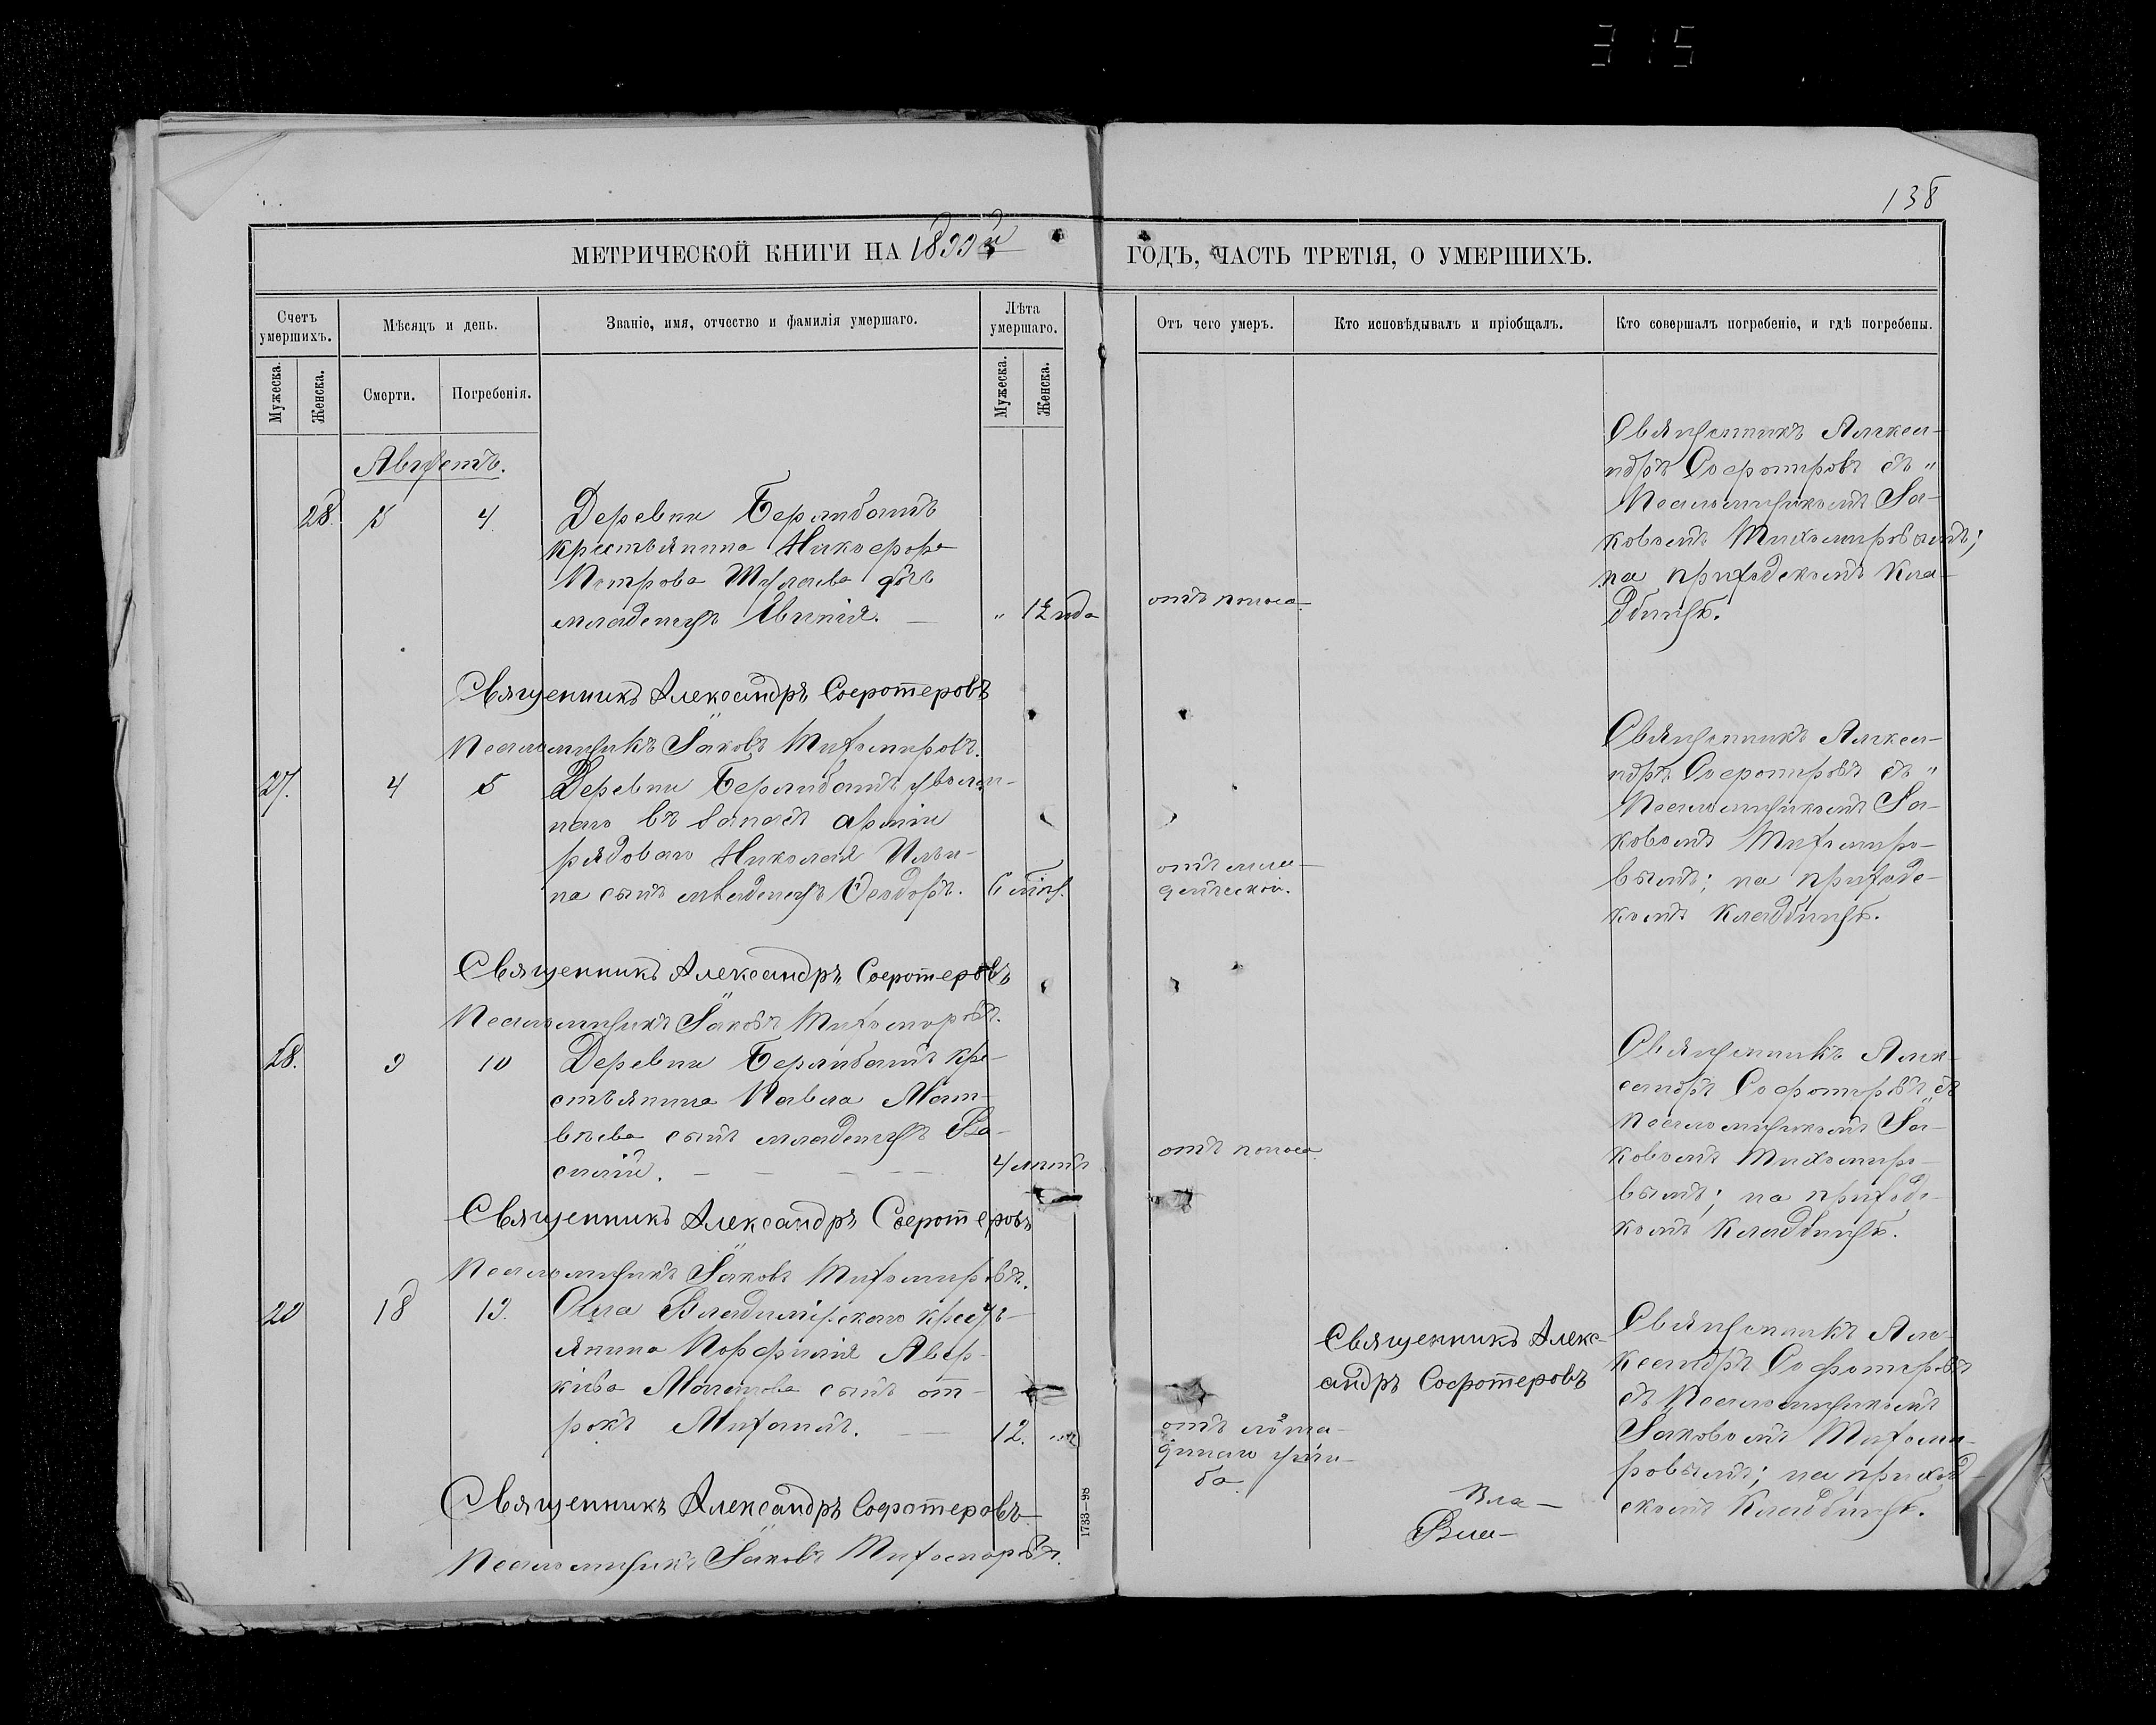 315
138
МЕТРИЧЕСКОЙ КНИГИ НА 1899й ГОДЪ, ЧАСТЬ ТРЕТІЯ, О УМЕРШИХЪ.
Счетъ умершихъ.
Мѣсяцъ и день.
Званіе, имя, отчество и фамилія умершаго.
Лѣта умершаго.
Отъ чего умеръ.
Кто исповѣдывалъ и пріобщалъ.
Кто совершалъ погребеніе, и гдѣ погребены.
Мужеска.
Женска.
Смерти.
Погребенія.
Мужеска.
Женска.
Августъ.
28. 3 4
Деревни
крестьянина Никифора
Петрова дочь
младенецъ
" 1½ года
отъ поноса
Священникъ Алексан-
дръ Софотеровъ съ "
Псаломщикомъ Іа-
ковомъ Тихомировымъ;
на приходскомъ кла-
дбищѣ.
Священникъ Александръ Софотеровъ
Псаломщикъ Іаковъ Тихомировъ.
27. 4 5
Деревни уволен-
наго въ запасъ арміи
рядоваго Николая Ильи-
на сынъ младенецъ Ѳеодоръ.
6 мѣс.
отъ мла-
денческой.
Священникъ Алексан-
дръ Софотеровъ съ "
Псаломщикомъ Іа-
ковомъ Тихомиро-
вымъ; на приходс-
комъ кладбищѣ.
Священникъ Александръ Софотеровъ
Псаломщикъ Іаковъ Тихомировъ.
28. 9 10
Деревни кре-
стьянина Павла Мат-
вѣева сынъ младенецъ Ва-
силій.
4 лѣтъ
отъ поноса
Священникъ Алек-
сандръ Софотеровъ съ
Псаломщикомъ Іа-
ковомъ Тихомиро-
вымъ; на приходс-
комъ кладбищѣ.
Священникъ Александръ Софотеровъ
Псаломщикъ Іаковъ Тихомировъ.
29 18 19.
Села Владимірскаго крест-
янина Порфирія Авер-
кіева сынъ от-
рокъ
12.
отъ лоша-
динаго уши-
ба.
Священникъ Алекс-
андръ Софотеровъ
Священникъ Але-
ксандръ Софотеровъ
съ Псаломщикомъ
Іаковомъ Тихоми-
ровымъ; на приход-
скомъ кладбищѣ.
Вла-
Священникъ Александръ Софотеровъ
Псаломщикъ Іаковъ Тихомировъ.
1733—98